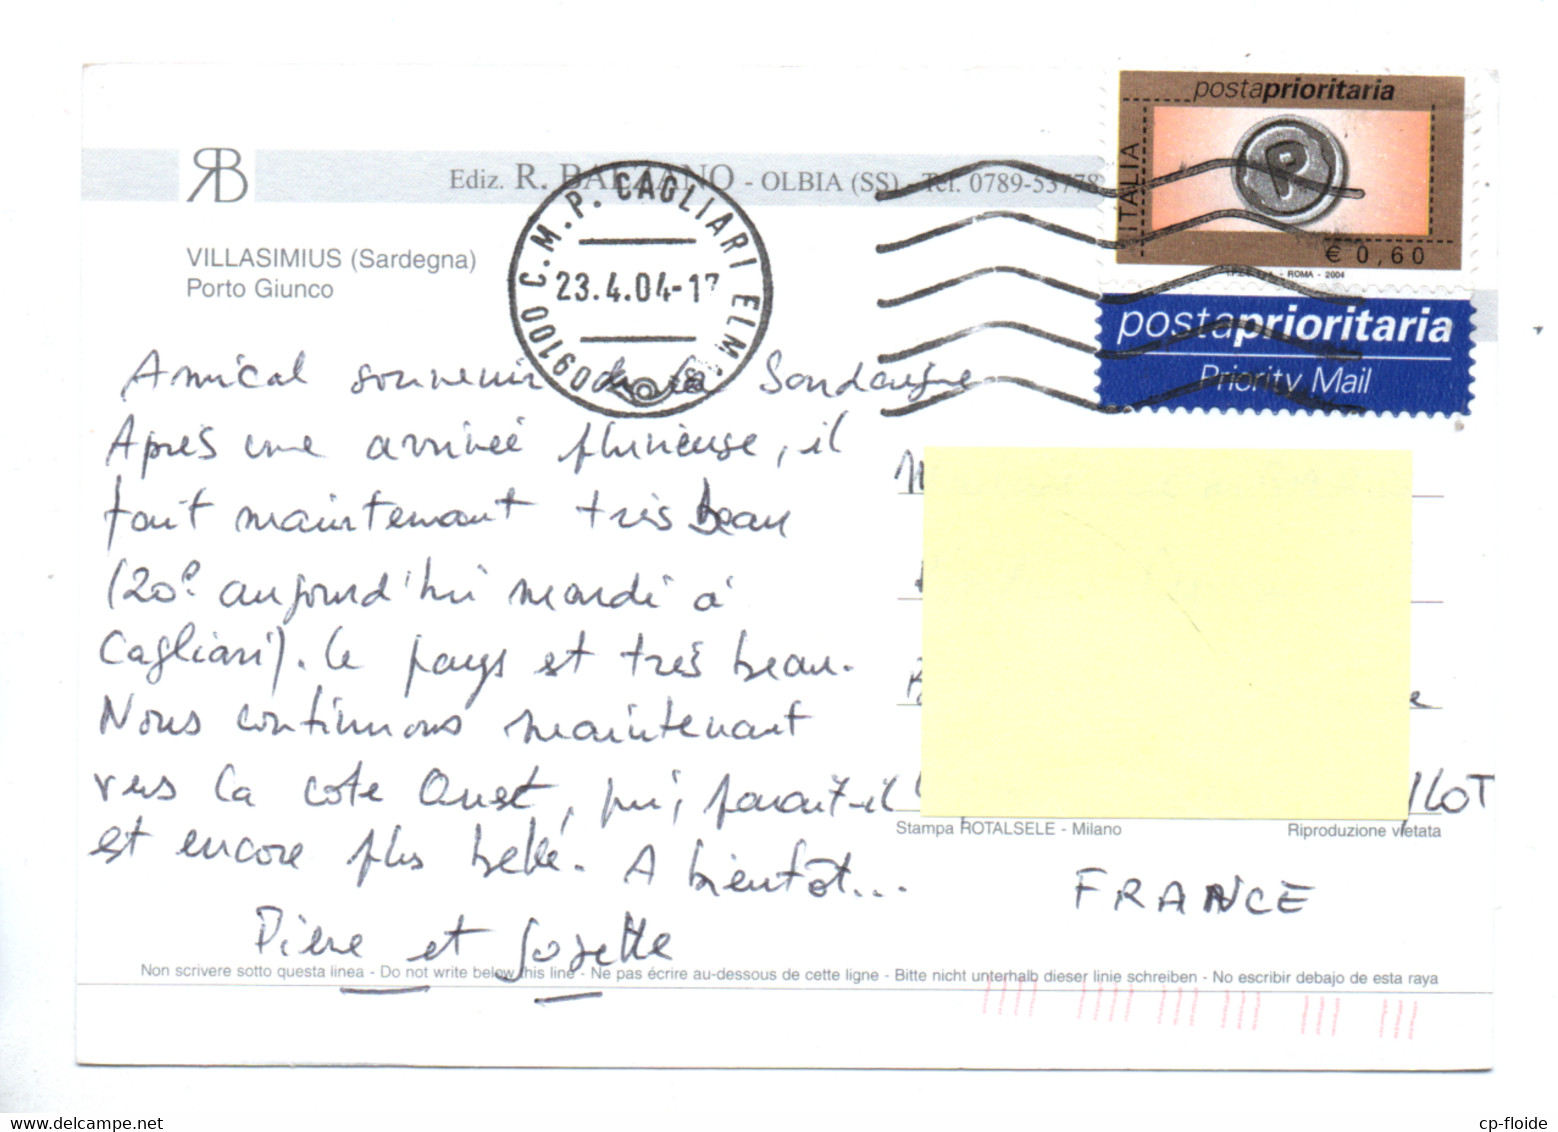 postaprioritaria
ITALIA
€ 0,60
I.P.Z.S. S.p.A. - ROMA - 2004
postaprioritaria
Priority Mail
RB
Ediz. R. - OLBIA (SS) - Tel. 0789-53778
C.M.P. CAGLIARI ELMAS 09100
23.4.04-17
VILLASIMIUS (Sardegna)
Porto Giunco
Amical souvenir de la Sardaigne
Après une arrivée pluvieuse, il
fait maintenant très beau
(20° aujourd'hui mardi à
Cagliari). Le pays est très beau.
Nous continuons maintenant
vers la cote Ouest, qui, parait-il
est encore plus belle. A bientôt...
Pierre et Josette
ILOT
FRANCE
Stampa ROTALSELE - Milano
Riproduzione vietata
Non scrivere sotto questa linea - Do not write below this line - Ne pas écrire au-dessous de cette ligne - Bitte nicht unterhalb dieser linie schreiben - No escribir debajo de esta raya
cp-floide